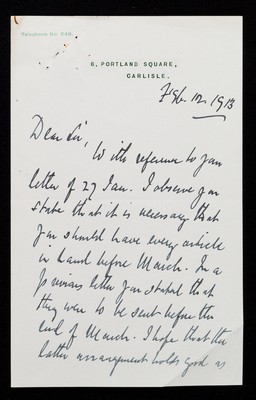 Telephone No. 540.
6, PORTLAND SQUARE,
CARLISLE.
Feb. 12. 1913
Dear Sir,
With reference to your
letter of 27 Jan. I observe you
state that it is necessary that
you should have every article
in hand before March. In a
previous letter you stated that
they were to be sent before the
end of March. I hope that the
latter arrangement holds good as